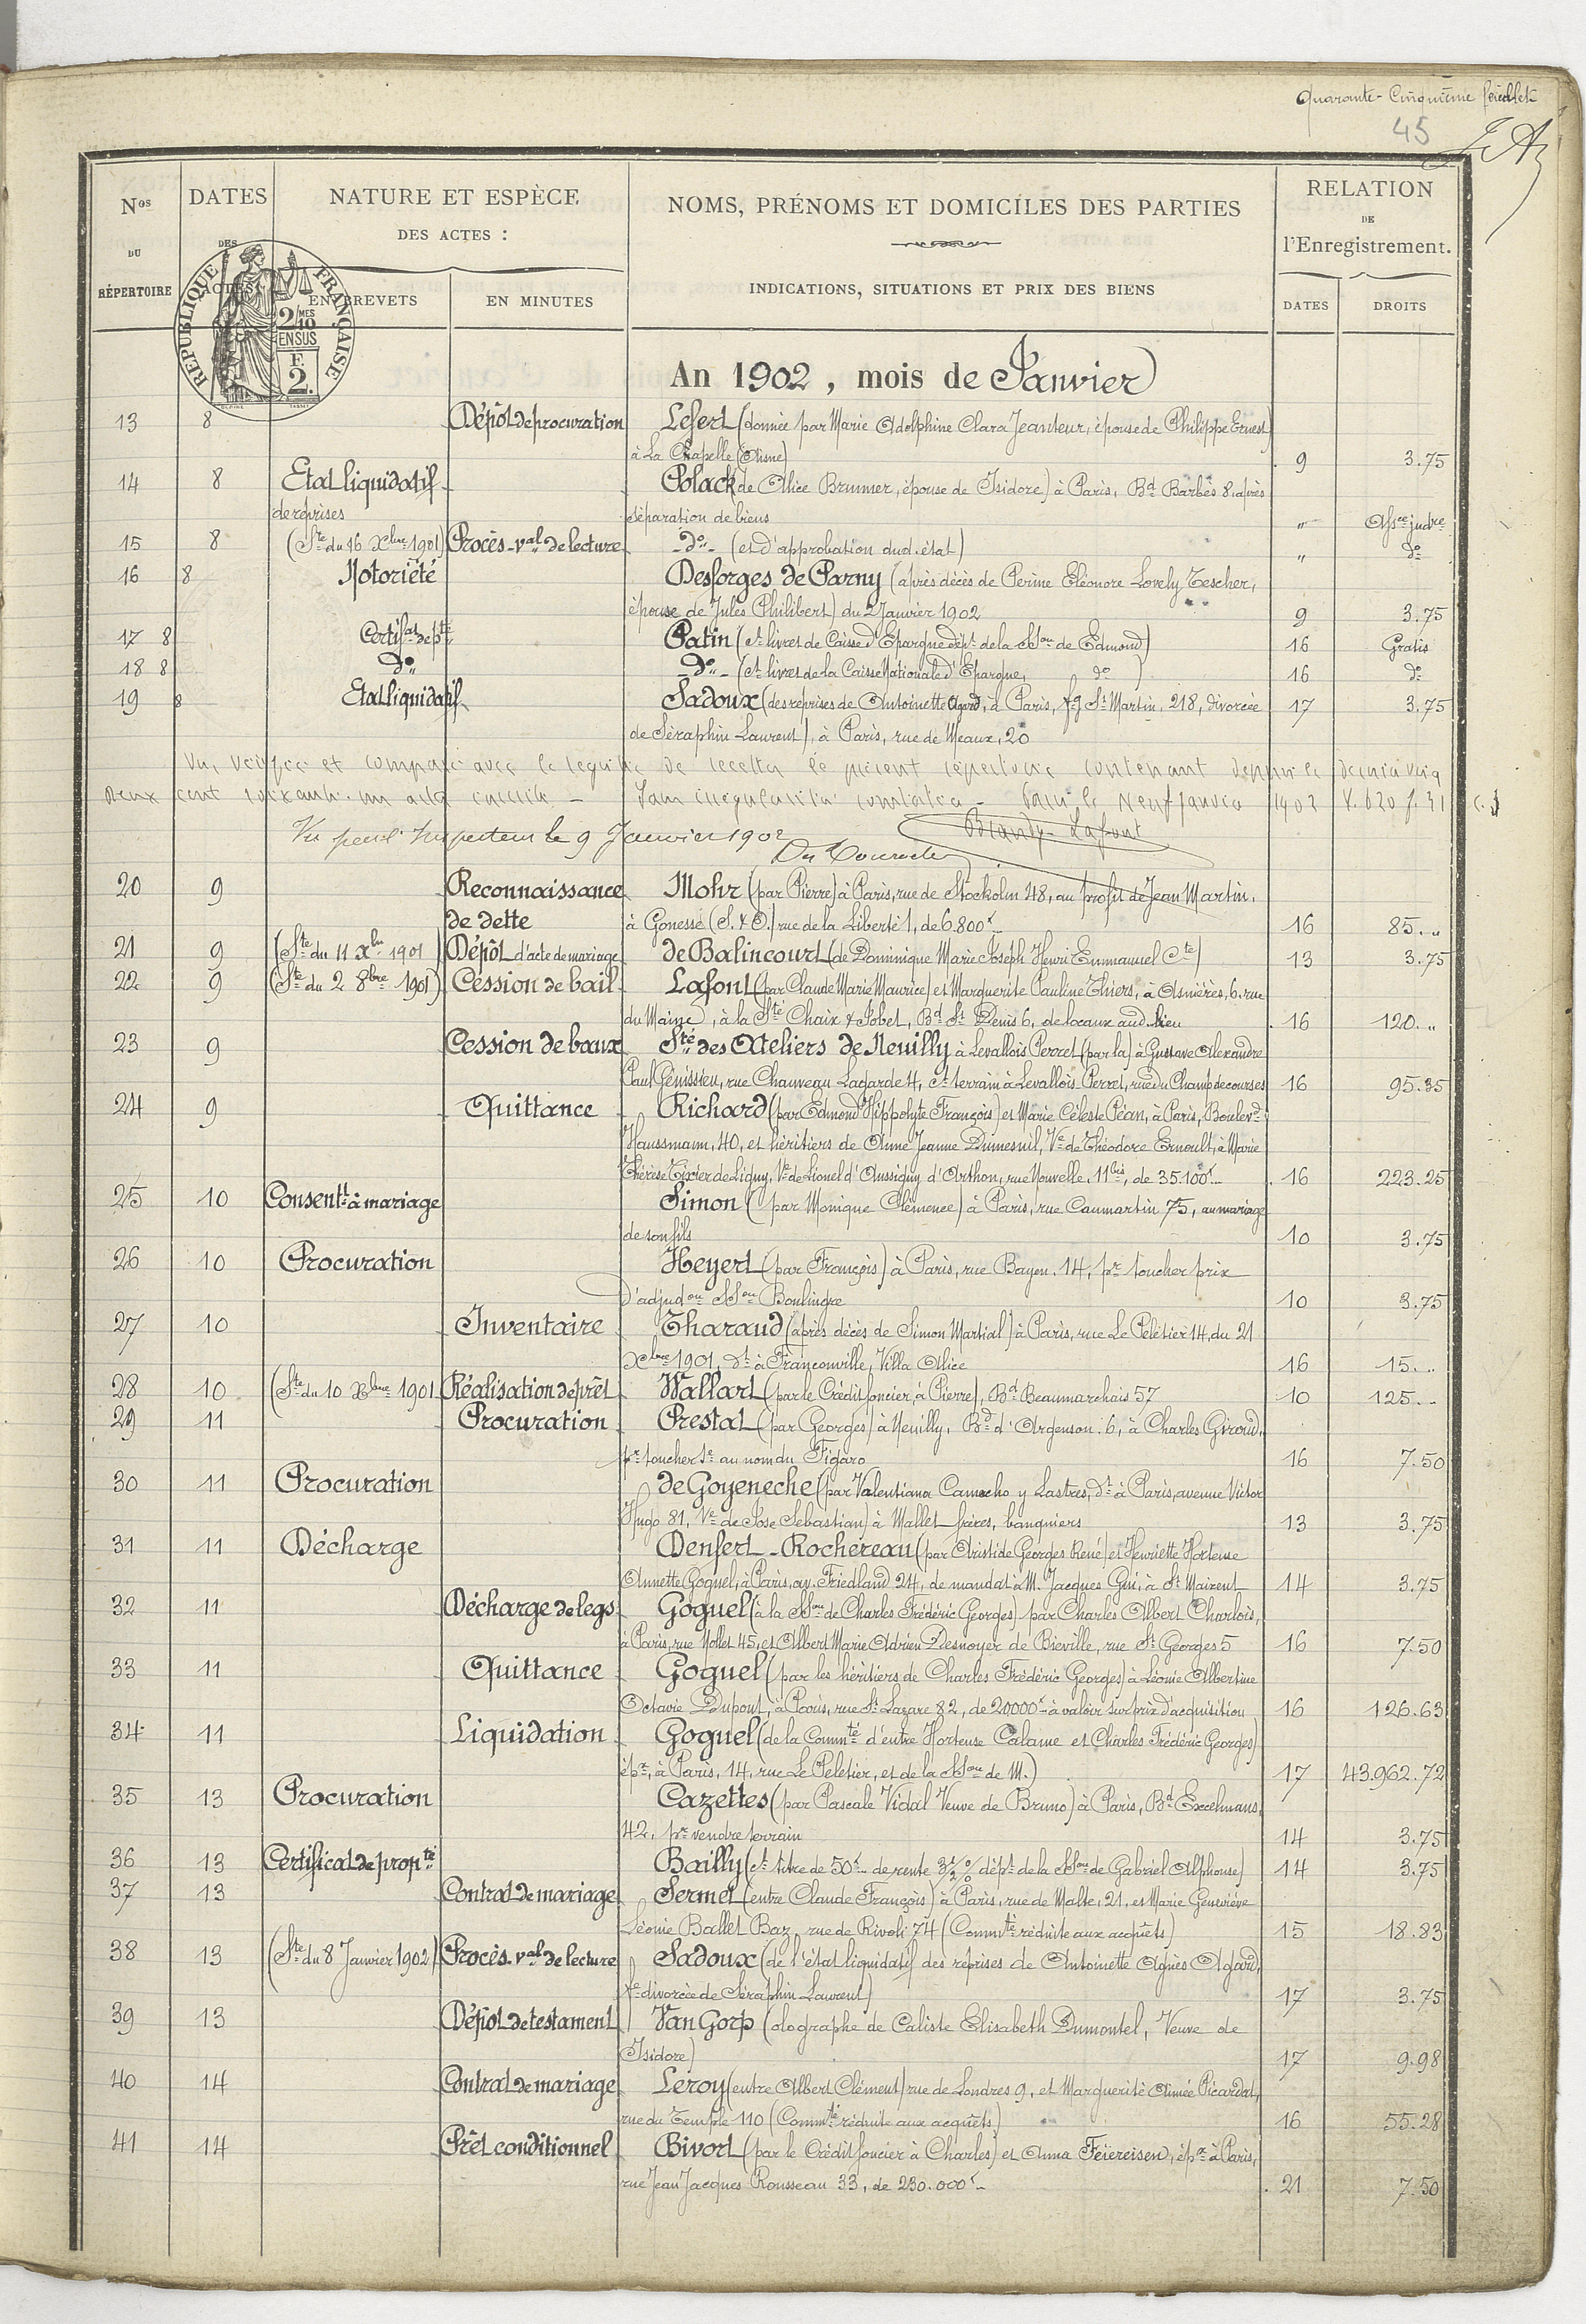 Quarante-Cinquième feuillet
45
Nos DU RÉPERTOIRE
DATES DES ACTES
NATURE ET ESPÈCE
DES ACTES :
EN BREVETS
EN MINUTES
NOMS, PRÉNOMS ET DOMICILES DES PARTIES
INDICATIONS, SITUATIONS ET PRIX DES BIENS
RELATION
DE
l'Enregistrement.
DATES
DROITS
RÉPUBLIQUE FRANÇAISE
2/10 MES
EN SUS
F.
2.
An 1902, mois de Janvier
13 8 Dépôt de procuration Lefert (donnée par Marie Adolphine Clara Jeanteur, épouse de Philippe Ernest)
à La Chapelle (Aisne) 9 3.75
14 8 Etat liquidatif Polack (de Alice Brunner, épouse de Isidore) à Paris, Bd Barbès 8, après
de reprises séparation de biens " Assce judre
15 8 (Ste du 16 Xbre 1901) Procès-val de lecture -do- (et d'approbation dud. état) " do
16 8 Notoriété Desforges de Parny (après décès de Perine Eléonore Lovely Tescher,
épouse de Jules Philibert) du 2 Janvier 1902 9 3.75
17 8 Certifat de pté Patin (ct livret de Caisse d'Epargne dépt de la Sson de Edmond) 16 Gratis
18 8 do -do- (ct livret de la Caisse Nationale d'Epargne, do) 16 do
19 8 Etat liquidatif Sadoux (des reprises de Antoinette Agard, à Paris, fg St Martin, 218, divorcée 17 3.75
de Séraphin Laurent), à Paris, rue de Meaux, 20
Vu, vérifié et comparé avec le registre de recette le présent répertoire contenant depuis le dernier visa
deux cent soixante-un actes inscrits - Sans irrégularités constatées - Paris le neuf janvier 1902 V. 620 f. 31 c. 3
Vu par l'Inspecteur le 9 Janvier 1902
20 9 Reconnaissance Mohr (par Pierre) à Paris, rue de Stockolm 48, au profit de Jean Martin,
de dette à Gonesse (S. & O.) rue de la Liberté 1, de 6.800f 16 85. "
21 9 (Ste du 11 Xbre 1901) Dépôt d'acte de mariage de Balincourt (de Dominique Marie Joseph Henri Emmanuel Cte) 13 3.75
22 9 (Ste du 2 8bre 1901) Cession de bail Lafont (par Claude Marie Maurice) et Marguerite Pauline Thiers, à Asnières, 6, rue
du Maine, à la Sté Chaix & Jobet, Bd St Denis 6, de locaux aud. lieu 16 120. "
23 9 Cession de baux Sté des Ateliers de Neuilly à Levallois Perret (par la) à Gustave Alexandre
Paul Génissieu, rue Chauveau Lagarde 4, ct terrain à Levallois-Perret, rue du Champ de courses 16 95.35
24 9 Quittance Richard (par Edmond Hippolyte François) et Marie Céleste Péan, à Paris, Boulevd
Haussmann, 40, et héritiers de Anne Jeanne Dumesnil, Ve de Théodore Ernoult, à Marie
Thérèse Tixier de Ligny, Ve de Lionel d'Aussigny d'Arthon, rue Nouvelle, 11bis, de 35100f 16 223.25
25 10 Consentt à mariage Simon (par Monique Clémence) à Paris, rue Caumartin 75, au mariage
de son fils 10 3.75
26 10 Procuration Heyert (par François) à Paris, rue Bayen, 14, pr toucher prix
d'adjudon Sson Boulingre 10 3.75
27 10 Inventaire Tharaud (après décès de Simon Martial) à Paris, rue Le Peletier 14, du 21
Xbre 1901, dt à Franconville, Villa Alice 16 15. "
28 10 (Ste du 10 Xbre 1901 Réalisation de prêt Wallart (par le Crédit foncier, à Pierre), Bd Beaumarchais 57 10 125. "
29 11 Procuration Prestat (par Georges) à Neuilly, Bd d'Argenson 6, à Charles Giroud,
pr toucher se au nom du Figaro 16 7.50
30 11 Procuration de Goyeneche (par Valentiana Camacho y Lastres, dt à Paris, avenue Victor
Hugo 81, Ve de Jose Sebastian) à Mallet frères, banquiers 13 3.75
31 11 Décharge Denfert-Rochereau (par Aristide Georges René) et Henriette Hortense
Annette Goguel, à Paris, av. Friedland 24, de mandat à M. Jacques Gué, à St Maixent 14 3.75
32 11 Décharge de legs Goguel (à la Sson de Charles Frédéric Georges) par Charles Albert Charlois,
à Paris, rue Nollet 45, et Albert Marie Adrien Desnoyer de Biéville, rue St Georges 5 16 7.50
33 11 Quittance Goguel (par les héritiers de Charles Frédéric Georges) à Léonie Albertine
Octavie Dupont, à Paris, rue St Lazare 82, de 20000f à valoir sur prix d'acquisition 16 126.63
34 11 Liquidation Goguel (de la Commté d'entre Hortense Calame et Charles Frédéric Georges)
épx, à Paris, 14, rue Le Peletier, et de la Sson de M.) 17 43.962.72
35 13 Procuration Cazettes (par Pascale Vidal Veuve de Bruno) à Paris, Bd Excelmans,
42, pr vendre terrain 14 3.75
36 13 Certificat de propté Bailly (ct titre de 50f de rente 3 1/2 % dépt de la Sson de Gabriel Alphonse) 14 3.75
37 13 Contrat de mariage Sermet (entre Claude François) à Paris, rue de Malte, 21, et Marie Geneviève
Léonie Ballet Baz, rue de Rivoli 74 (Commté réduite aux acquêts) 15 18.83
38 13 (Ste du 8 Janvier 1902) Procès-val de lecture Sadoux (de l'état liquidatif des reprises de Antoinette Agnès Agard,
fe divorcée de Séraphin Laurent) 17 3.75
39 13 Dépôt de testament Van Gorp (olographe de Caliste Elisabeth Dumontel, Veuve de
Isidore) 17 9.98
40 14 Contrat de mariage Leroy (entre Albert Clément) rue de Londres 9, et Marguerite Aimée Picardat,
rue du Temple 110 (Commté réduite aux acquêts) 16 55.28
41 14 Prêt conditionnel Bivort (par le Crédit foncier à Charles) et Anna Feiereisen, épx à Paris,
rue Jean Jacques Rousseau 33, de 230.000f 21 7.50